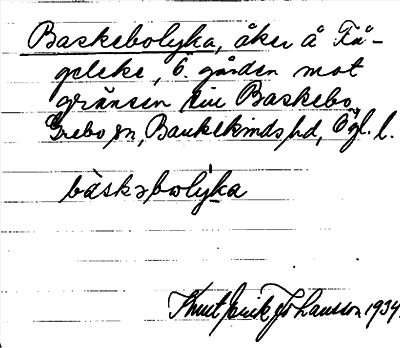 Baskebolyka, åker å Få-
geleke, 6. gården mot
gränsen till Baskebo,
Grebo sn, Bankekinds hd, Ögl. l.
bàskəbωlý̀ka
Knut Erik Johansson 1934.